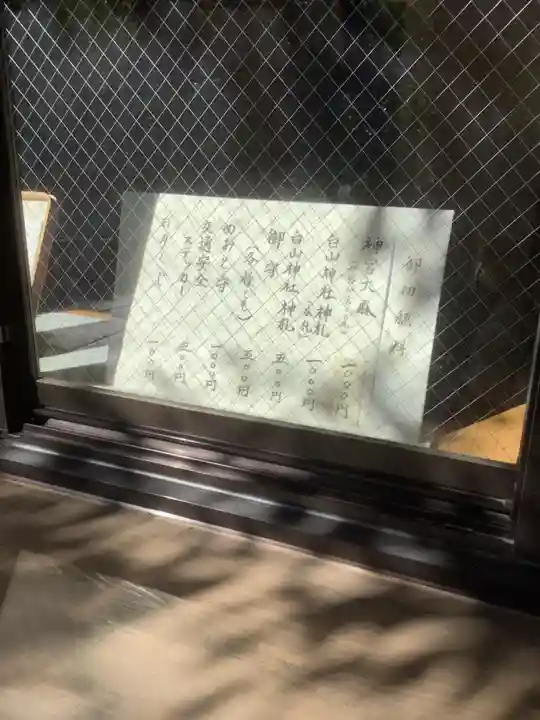 御初穂料
神宮大麻
一〇〇〇円
白山神社 神札
(木札)
一〇〇〇円
白山神社 神札
五〇〇円
御守
(各種とも)
五〇〇円
めおと守
一〇〇〇円
交通安全
ステッカー
五〇〇円
おみくじ
一〇〇円